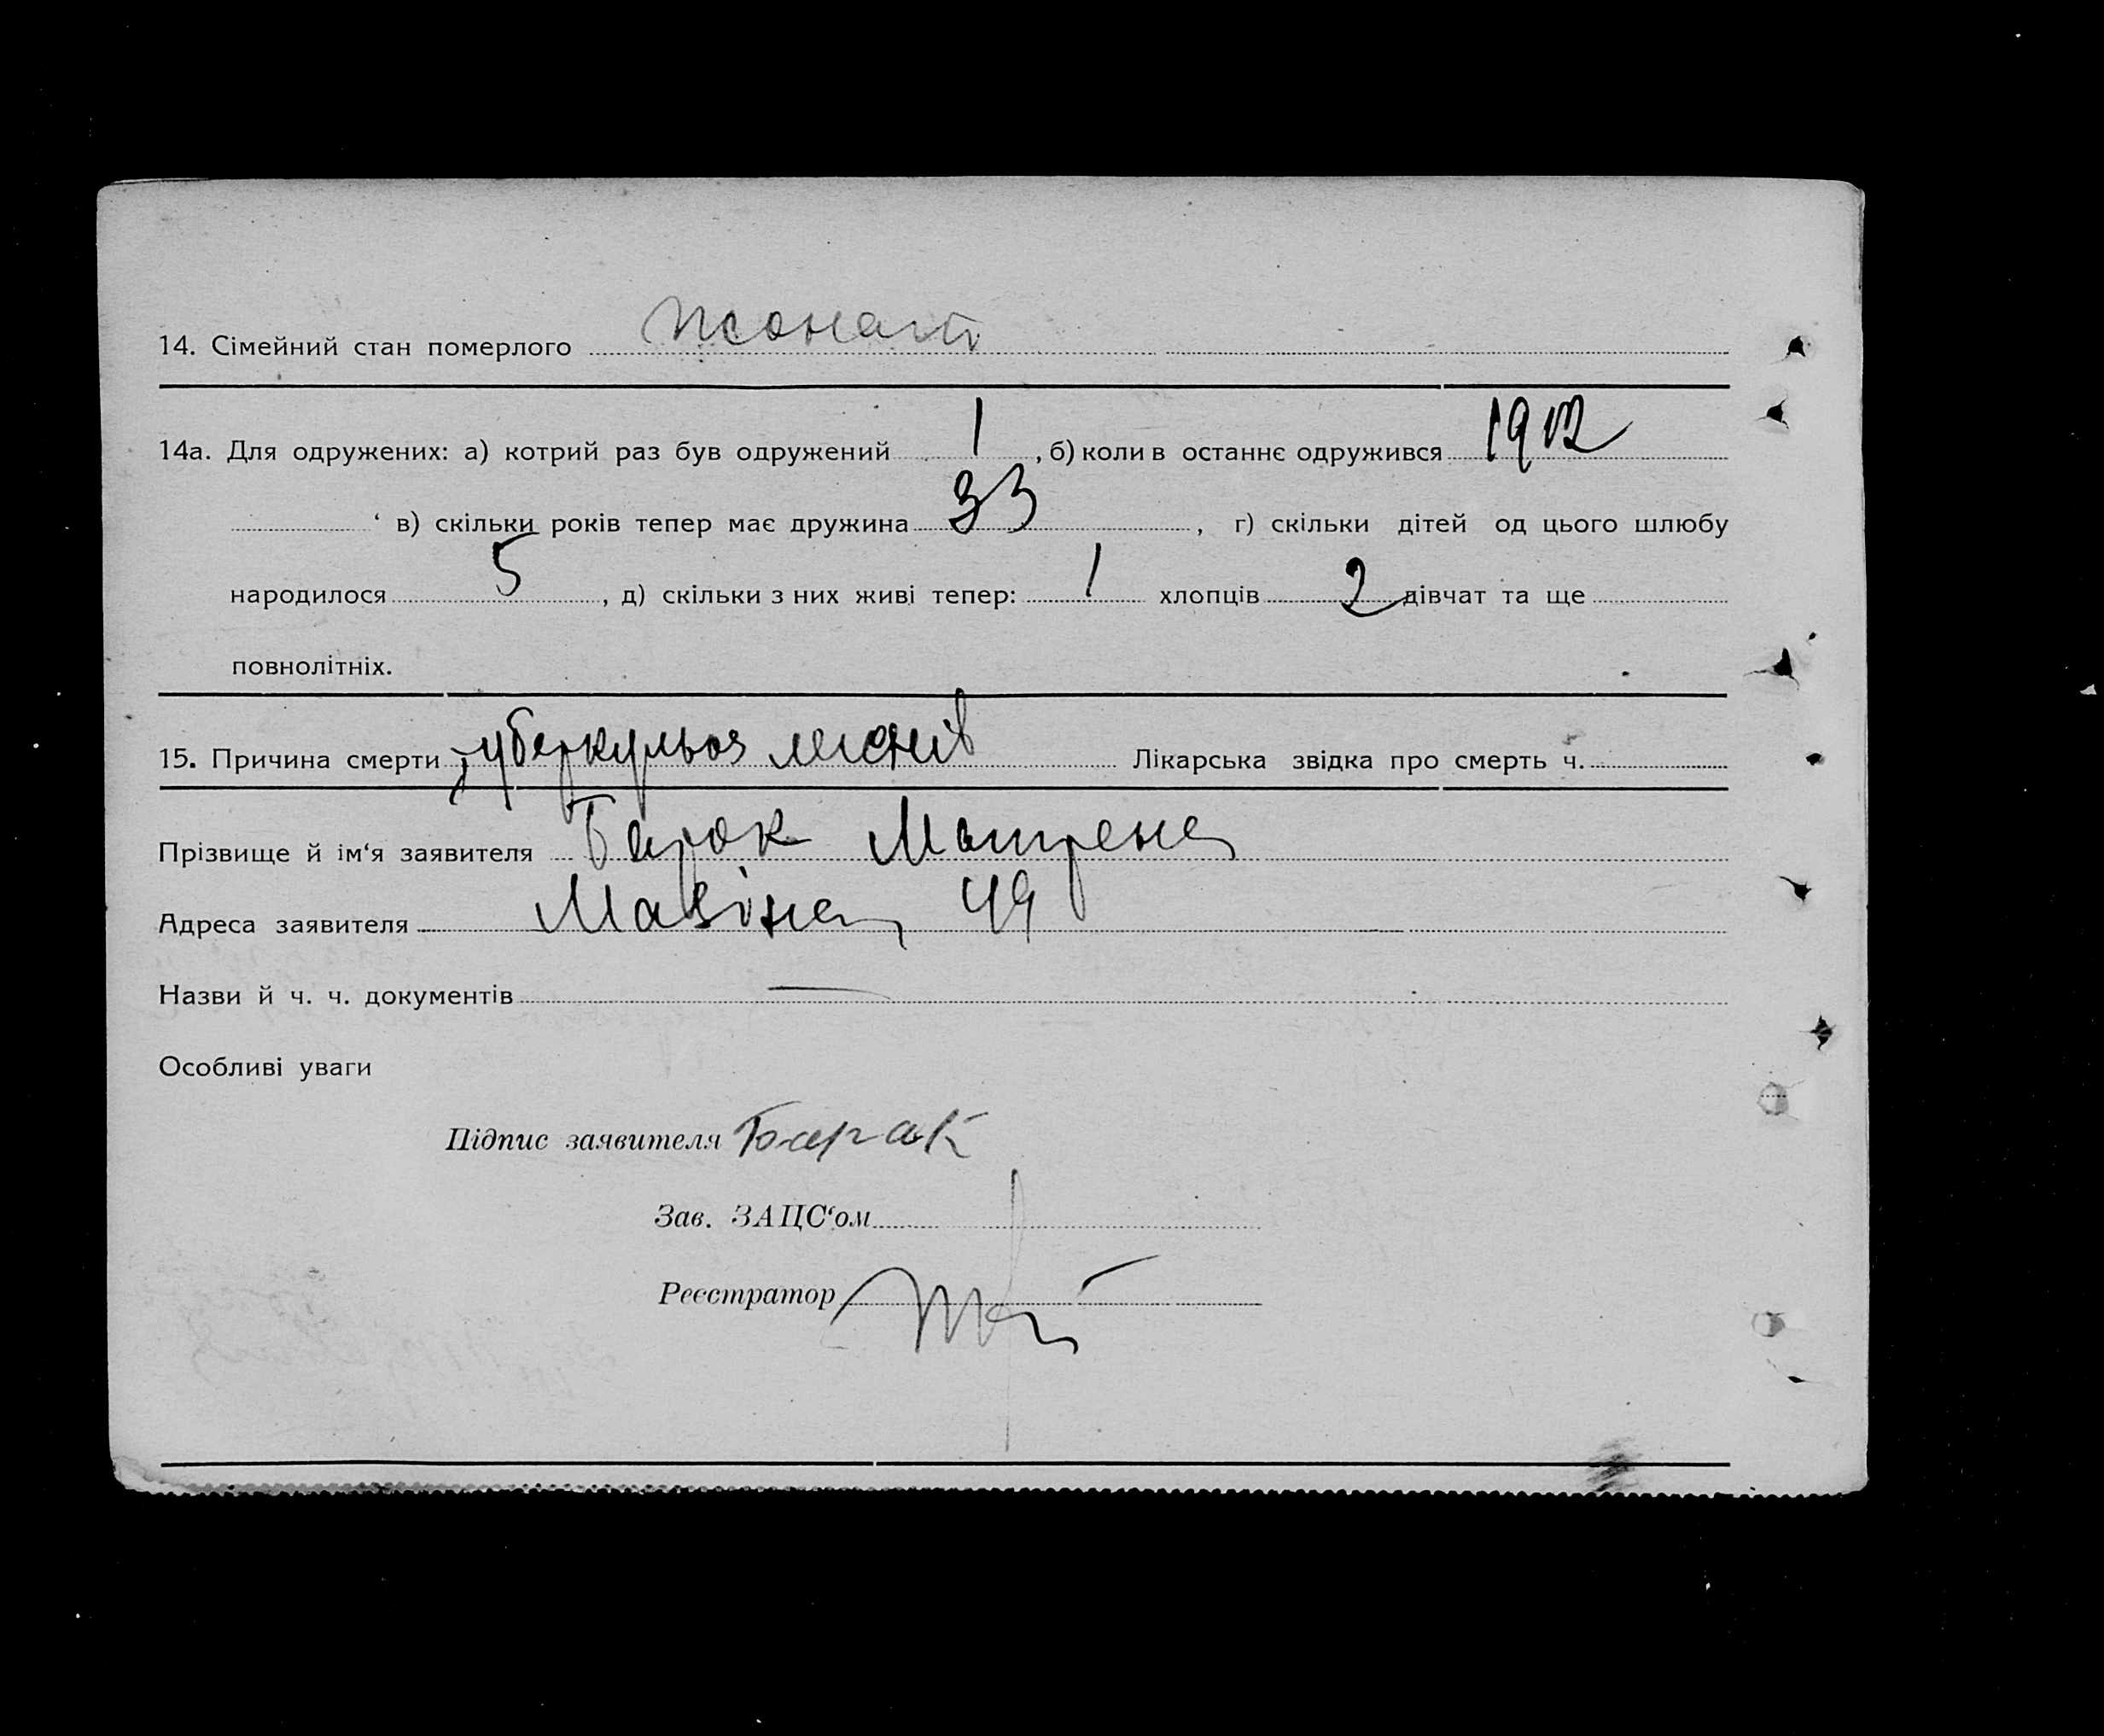 14. Сімейний стан померлого жонат
14а. Для одружених: а) котрий раз був одружений 1, б) коли в останнє одружився 1912
в) скільки років тепер має дружина 33, г) скільки дітей од цього шлюбу
народилося 5, д) скільки з них живі тепер: 1 хлопців 2 дівчат та ще
повнолітніх.
15. Причина смерти туберкульоз легенів Лікарська звідка про смерть ч.
Прізвище й ім‘я заявителя Барок Мотрена
Адреса заявителя 49
Назви й ч. ч. документів —
Особливі уваги
Підпис заявителя Барак
Зав. ЗАЦС‘ом
Реєстратор